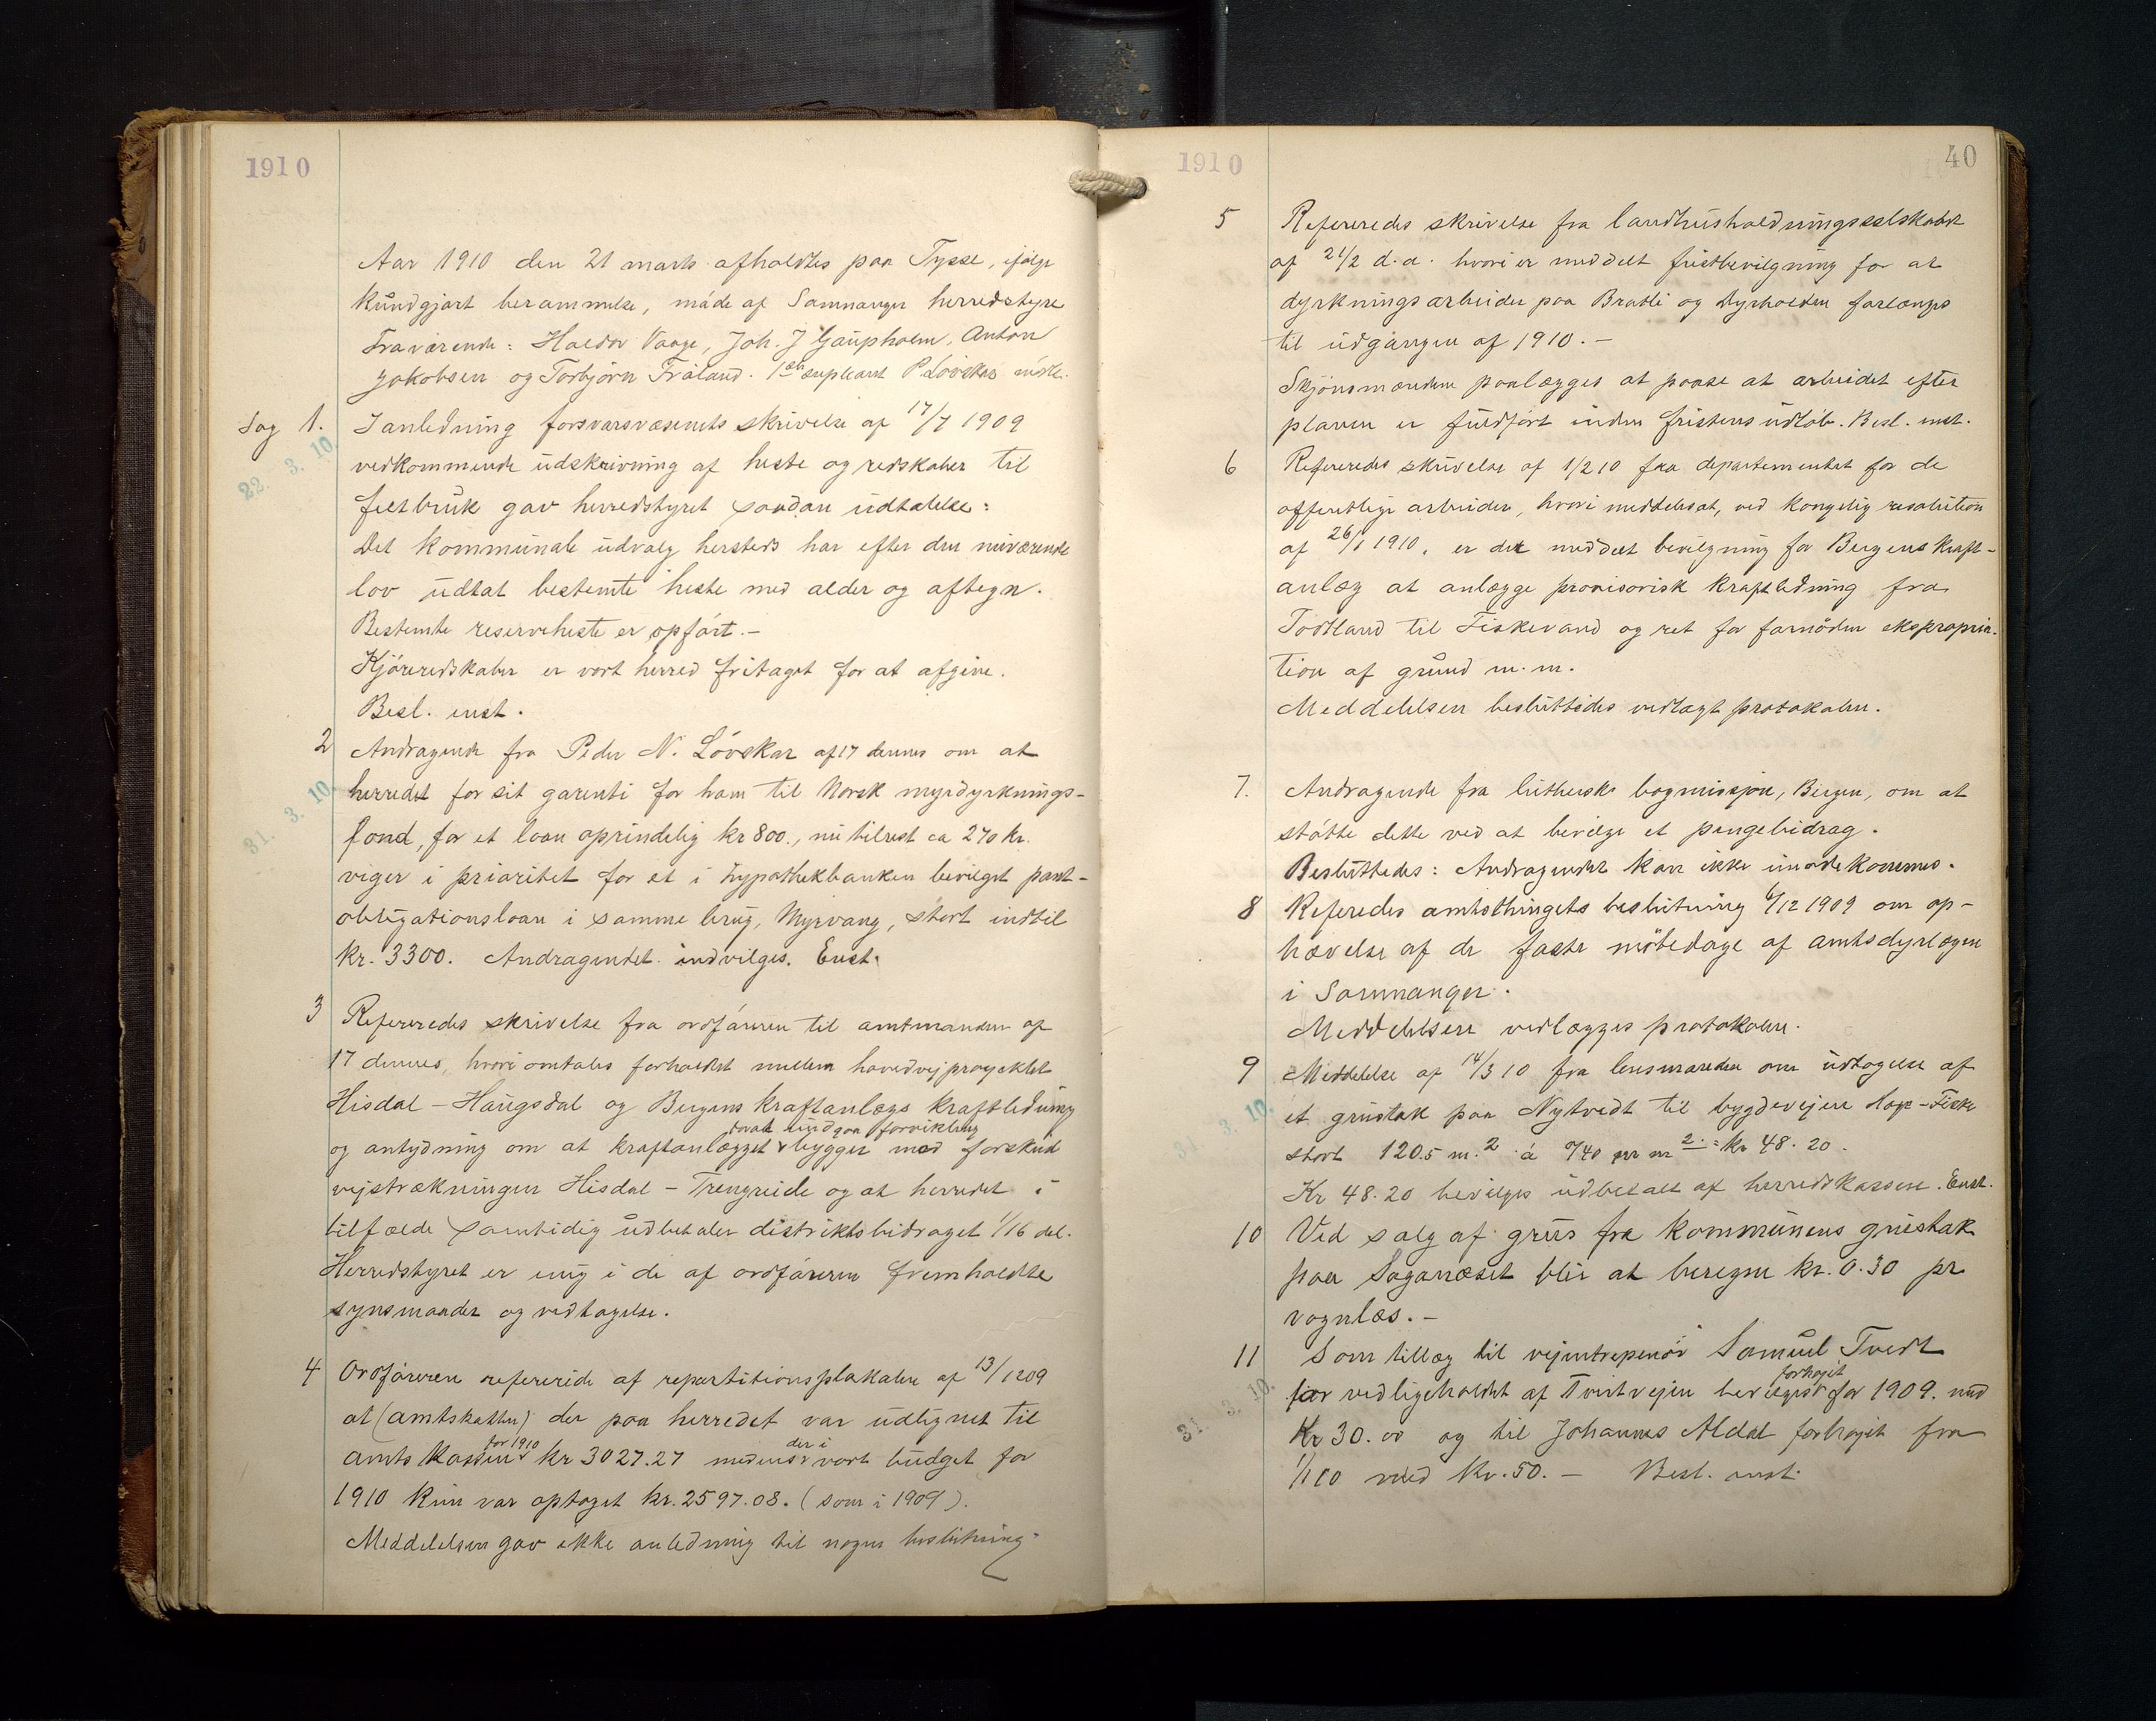 1910
Aar 1910 den 21 marts afholdtes paa Tysse, ifølge
kundgjort berammelse, møde af Samnanger herredstyre
Fraværende: Haldor Vaage, Joh. J Gaupholm, Anton
Jakobsen og Torbjørn Tråland. 1ste supleant P Løvskar mødte.
Sag 1. Ianledning forsvarsvæsenets skrivelse af 17/7 1909
22. 3. 10
vedkommende udskrivning af heste og redskaber til
feltbruk gav herredstyret saadan udtalelse:
Det kommunale udvalg hersteds har efter den nuværende
lov udtat bestemte heste med alder og aftegn.
Bestemte reserveheste er opført.-
Kjøreredskaber er vort herred fritaget for at afgive.
Besl. enst.
2 Andragende fra Peder N. Løvskar af 17 dennes om at
31. 3. 10.
herredet for sit garenti for ham til Norsk myrdyrknings-
fond, for et laan oprindelig kr 800., nu tilrest ca 270 kr.
viger i prioritet for et i hypothekbanken bevilget pant-
obligationslaan i samme brug, Myrvang, stort indtil
kr. 3300. Andragendet indvilges. Enst.
3 Refereredes skrivelse fra ordføreren til amtmanden af
17 dennes, hvori omtales forholdet mellem hovedvejprojektet
Hisdal - Haugsdal og Bergens kraftanlægs kraftledning
forat undgaa forvikling
og antydning om at kraftanlægget bygger med forskud
vejstrækningen Hisdal - Trengreide og at herredet i
tilfælde samtidig udbetaler distriktsbidraget 1/16 del.
Herredstyret er enig i de af ordføreren fremholdte
synsmaader og vedtagelse.
4 Ordføreren refererede af repartitionsplakaten af 13/12 09
at (amtskatten) der paa herredet var udlignet til
for 1910 der i
amtskassen kr 3027.27 medens vort budget for
1910 kun var optaget kr. 2597.08. (som i 1909).
Meddelelsen gav ikke anledning til nogen beslutning.
1910
40
5 Refereredes skrivelse fra landhusholdningsselskabet
af 21/2 d.a. hvori er meddelt fristbevilgning for at
dyrkningsarbeider paa Bratli og Dyrholden forlænges
til udgangen af 1910.-
Skjønsmændene paalægges at paase at arbeidet efter
planen er fuldført inden fristens udløb. Besl. enst.
6 Refereredes skrivelse af 1/2 10 fra departementet for de
offentlige arbeider, hvori meddeles at, ved kongelig resolution
af 26/1 1910, er det meddelt bevilgning for Bergens kraft-
anlæg at anlægge provisorisk kraftledning fra
Todtland til Fiskevand og ret for fornøden ekspropria-
tion af grund m.m.
Meddelelsen besluttedes vedlagt protokolen.
7. Andragende fra lutherske bogmissjon, Bergen, om at
støtte dette ved at bevilge et pengebidrag.
Besluttedes: Andragendet kan ikke imødekommes.
8 Referedes amtsthingets beslutning 6/12 1909 om op-
hævelse af de faste møtedage af amtsdyrlægen
i Samnanger.
Meddelelsen vedlægges protokolen.
9 Meddelelse af 14/3 10 fra lensmanden om udtagelse af
31. 3. 10.
et grustak paa Nytvedt til bygdevejen Hage-Fiske
stort 120.5 m.2 á 0/40 per m 2. = kr 48.20.
Kr 48.20 bevilges udbetalt af herredskassen. Enst.
10 Ved salg af grus fra kommunens grustak
paa Saganæset blir at beregne kr. 0.30 pr
vognlæs.-
11 Som tillæg til vejentrepenør Samuel Tvedt
forhøjet
31 3. 10.
for vedligeholdet af Tveitvejen bevilges for 1909. med
Kr 30.00 og til Johannes Aldal forhøjet fra
1/1 10 med Kr. 50.- Besl. enst.